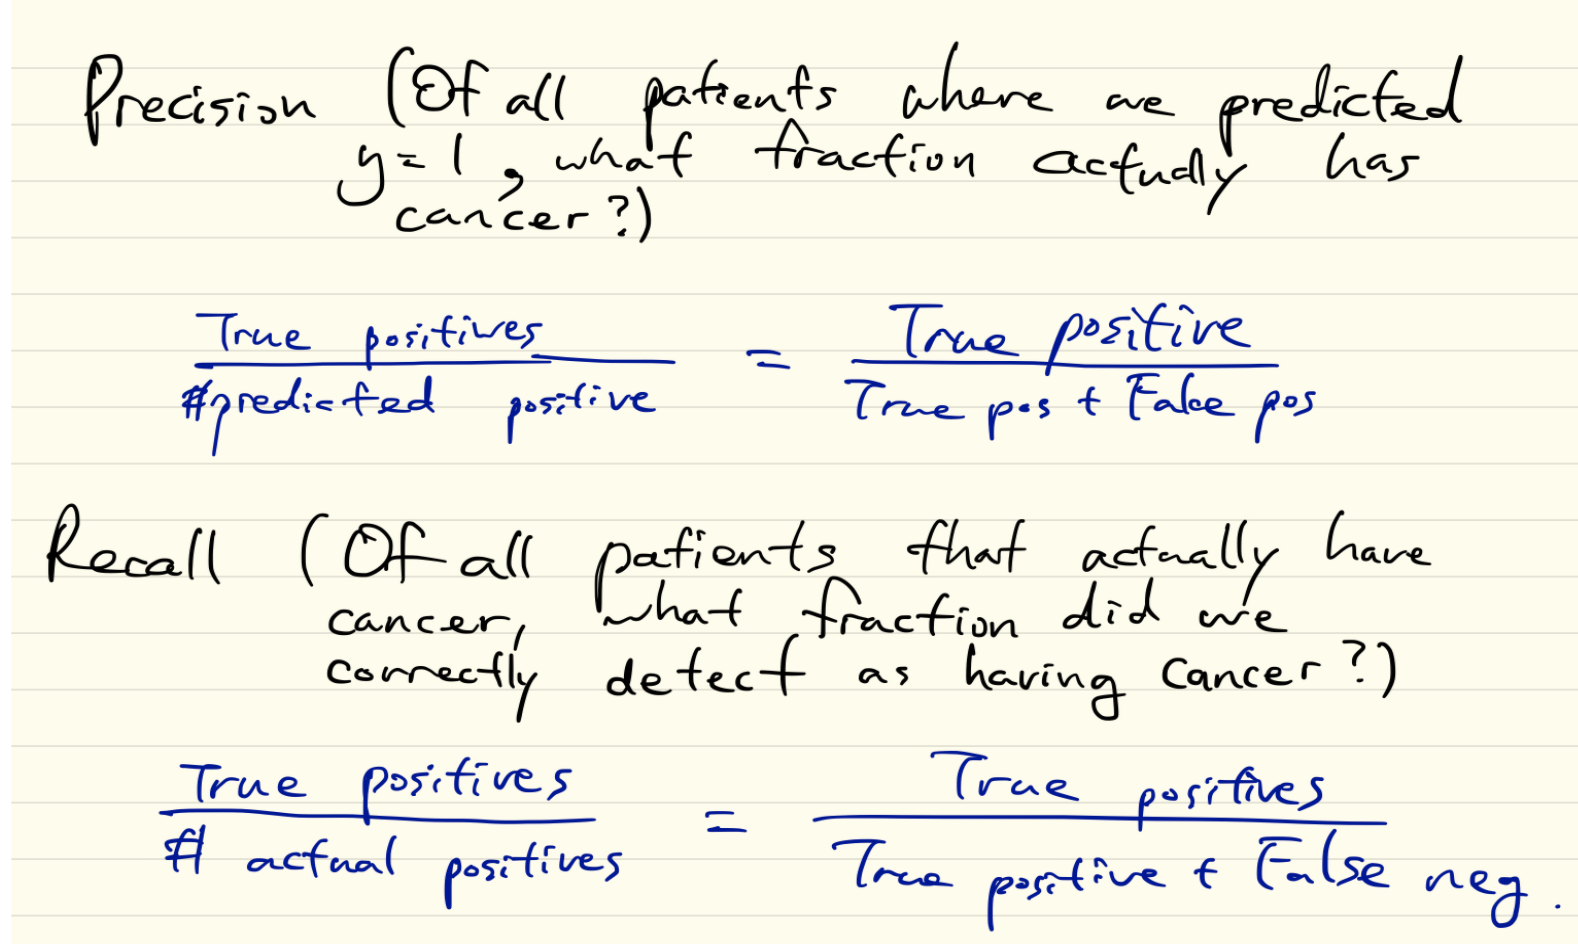 Precision (Of all patients where we predicted
y=1, what fraction actually has
cancer?)
True positives
#predicted positive
=
True positive
True pos + False pos
Recall (Of all patients that actually have
cancer, what fraction did we
correctly detect as having cancer?)
True positives
# actual positives
=
True positives
True positive + False neg.